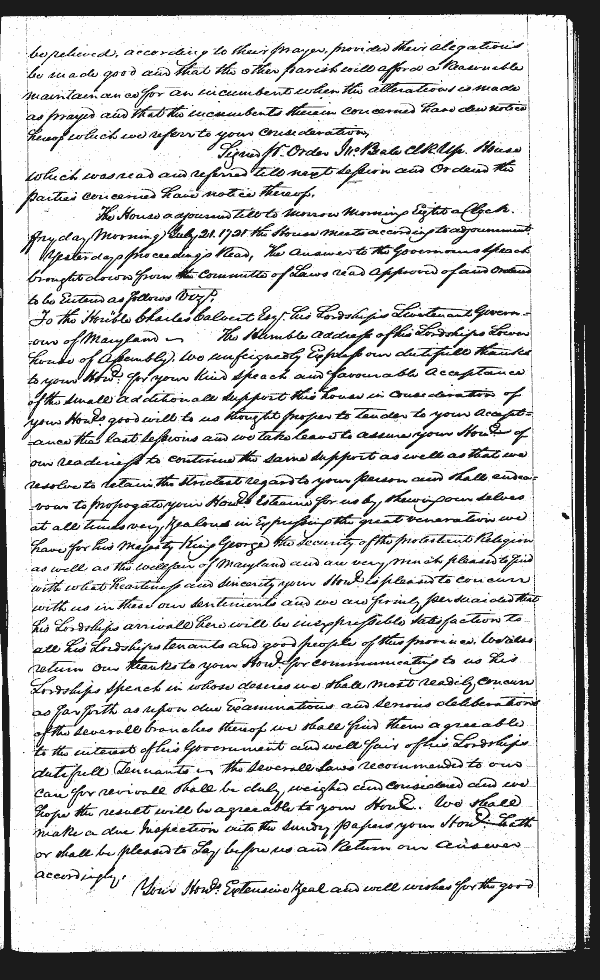 be relieved, according to their prayer, provided their alegations
be made good and that the other parish will afford a Reasonable
maintainance for an incumbent when the alterations is made
as prayed and that the incumbents therein concerned have due notice
hereof which we referr to your consideration,
Signed p. Order Jno. Beale Clk Up. House
which was read and referred till next session and Ordered the
parties concerned have notice thereof.
The House adjourned till to morrow morning Eight a Clock.
Fryday Morning July 21. 1721 the House meets according to adjournment
Yesterdays proceedings Read, The Answer to the Governours speach
brought down from the Committe of Laws read Approved of and Ordered
to be Entered as follows Vizt.
To the Honble Charles Calvert Esqr. his Lordships Lieutenant Govern-
-our of Maryland The Humble Address of his Lordships Lower
house of Assembly. we unfeignedly Express our dutifull thanks
to your Honr. for your kind speach and favourable Acceptance
of the small additionall support this house in consideration of
your Honrs good will to us thought proper to tender to your Accept-
-ance the last sessions and we take leave to assure your Honr. of
our readiness to continue the same support as well as that we
resolve to retain the strictest regard to your person and shall endea-
-vour to propogate your Honrs Esteeme for us by shewing our selves
at all times very Zealous in Expressing the great veneration we
have for his Majesty King George, the security of the protestant Religion
as well as the wellfair of Maryland and are very much pleased to find
with what heartiness and sincerity your Honr. is pleased to concurr
with us in these our sentiments and we are firmly perswaided that
his Lordships arrivall here will be inexpressible satisfaction to
all his Lordships tenants and good people of this province. We also
return our thanks to your Honr. for communicating to us his
Lordships speach in whose desires we shall most readily concurr
as far forth as upon due Examinations and serious deliberations
of the severall branches thereof we shall find them agreeable
to the interest of his Government and well fair of his Lordships
dutifull Tennants the severall Laws recommended to our
care for revivall shall be duly weighed and considered and we
hope the result will be agreeable to your Honr. We shall
make a due Inspection into the sundry papers your Honr. hath
or shall be pleased to Lay before us and Return our answer
accordingly.
Your Honrs. Extensive Zeal and well wishes for the good